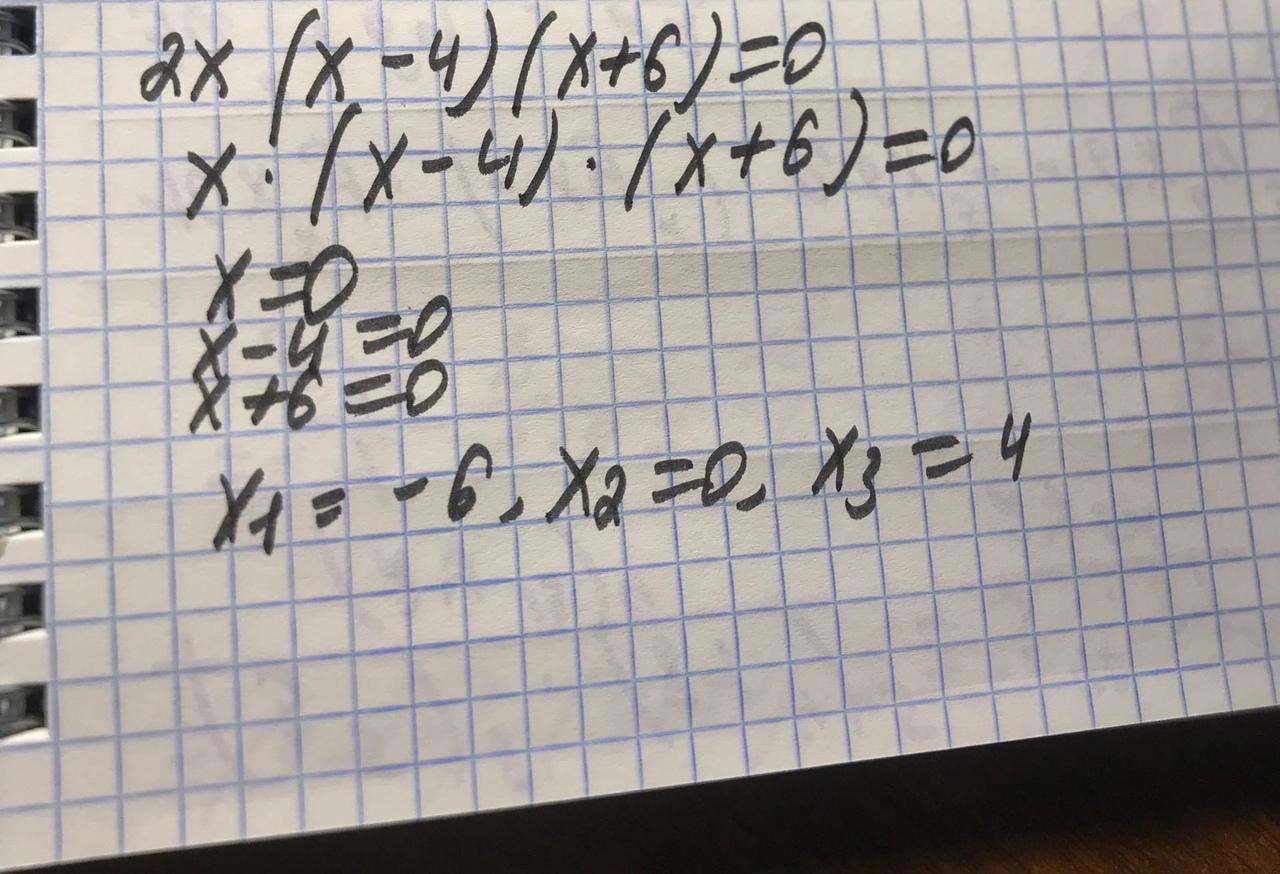 2x (x - 4) (x + 6) = 0
x · (x - 4) · (x + 6) = 0
x = 0
x - 4 = 0
x + 6 = 0
x1 = - 6, x2 = 0, x3 = 4